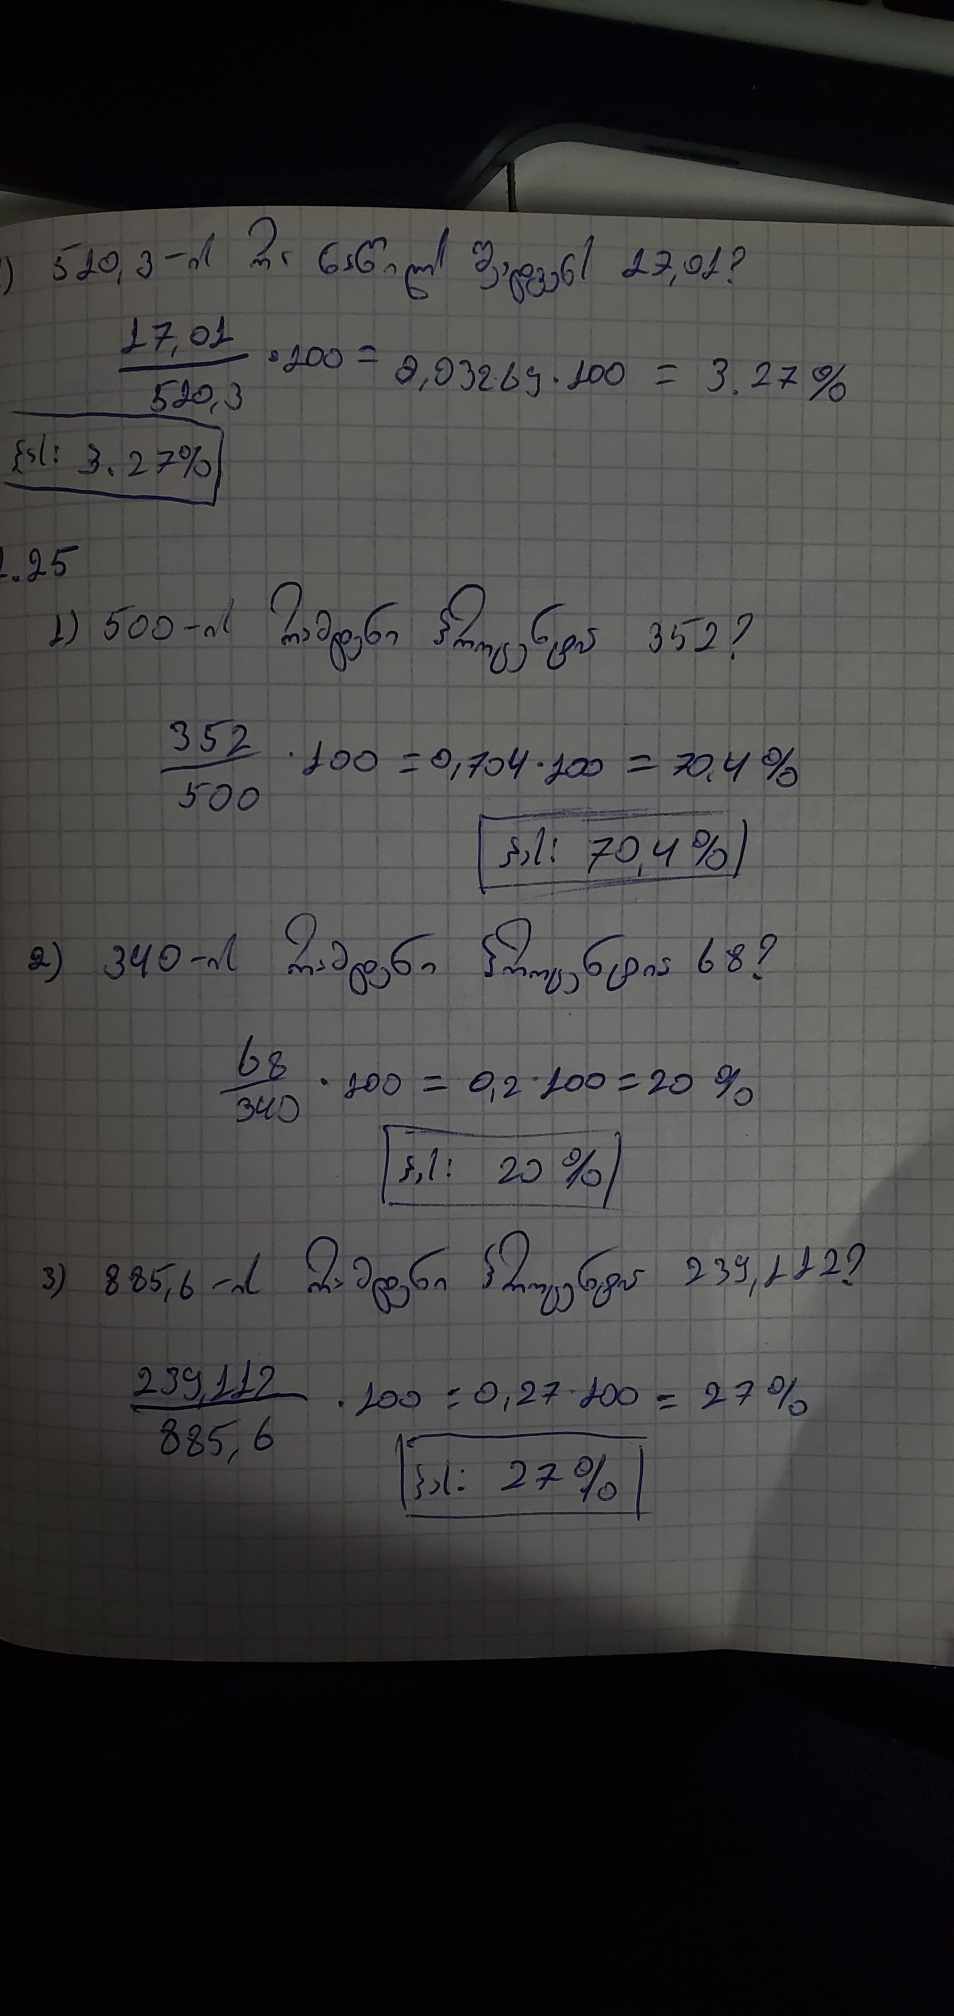 ) 510,3-ის რა ნაწილს შეადგენს 17,01?
17,01
510,3
·100 = 0,03269·100 = 3.27%
პას: 3.27%
1.25
1) 500-ის რამდენი პროცენტია 352?
352
500
·100 = 0,704·100 = 70,4%
პას: 70,4%
2) 340-ის რამდენი პროცენტია 68?
68
340
·100 = 0,2·100 = 20%
პას: 20%
3) 885,6-ის რამდენი პროცენტია 239,112?
239,112
885,6
·100 = 0,27·100 = 27%
პას: 27%